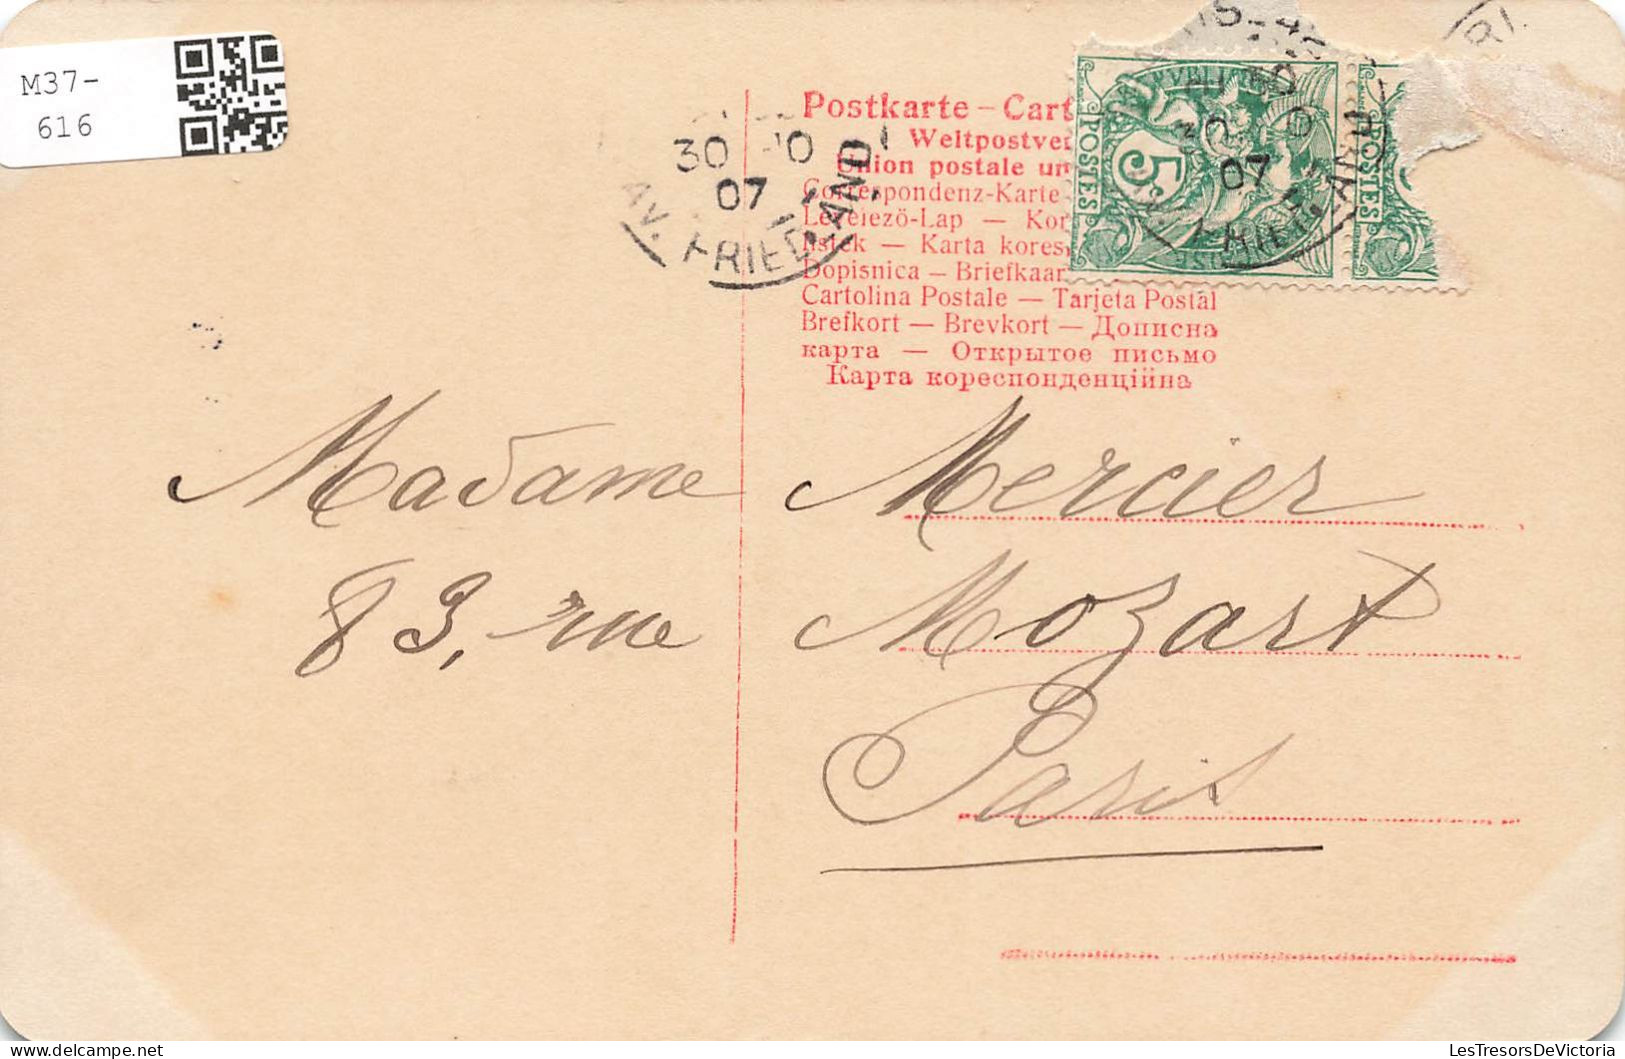 M37-
616
30 -10
07
AV. FRIEDLAND
Postkarte – Cart
Weltpostver
Union postale un
Correspondenz-Karte
Levelező-Lap — Kor
listek — Karta kores
Dopisnica — Briefkaar
Cartolina Postale — Tarjeta Postal
Brefkort — Brevkort — Дописна
карта — Открытое письмо
Карта кореспонденційна
POSTES
5
07
POSTES
Madame Mercier
83, rue Mozart
Paris
LesTresorsDeVictoria